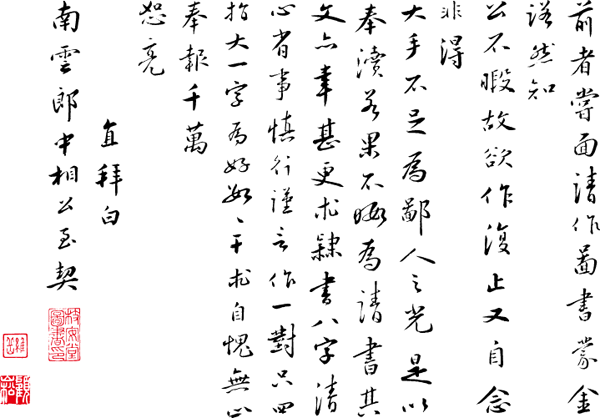 前者嘗面請作圖書蒙金
諾然知
公不暇故欲作復止又自念
非得
大手不足為鄙人之光是以
奉瀆若果不暇為請書其
文亦幸甚更求隸書八字清
心省事慎行謹言作一對只四
指大一字為好數數干求自愧無止
奉報千萬
恕亮
直拜白
南雲郎中相公至契